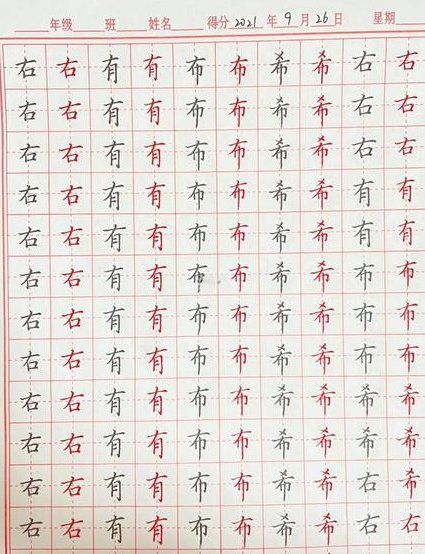 年级 班 姓名 得分 2021 年 9 月 26 日 星期
右 右 有 有 布 布 希 希 右 右
右 右 有 有 布 布 希 希 右 右
右 右 有 有 布 布 希 希 右 右
右 右 有 有 布 布 希 希 有 有
右 右 有 有 布 布 希 希 有 有
右 右 有 有 布 布 希 希 布 布
右 右 有 有 布 布 希 希 布 布
右 右 有 有 布 布 希 希 布 布
右 右 有 有 布 布 希 希 希 希
右 右 有 有 布 布 希 希 希 希
右 右 有 有 布 布 希 希 右 希
右 右 有 有 布 布 希 希 右 右